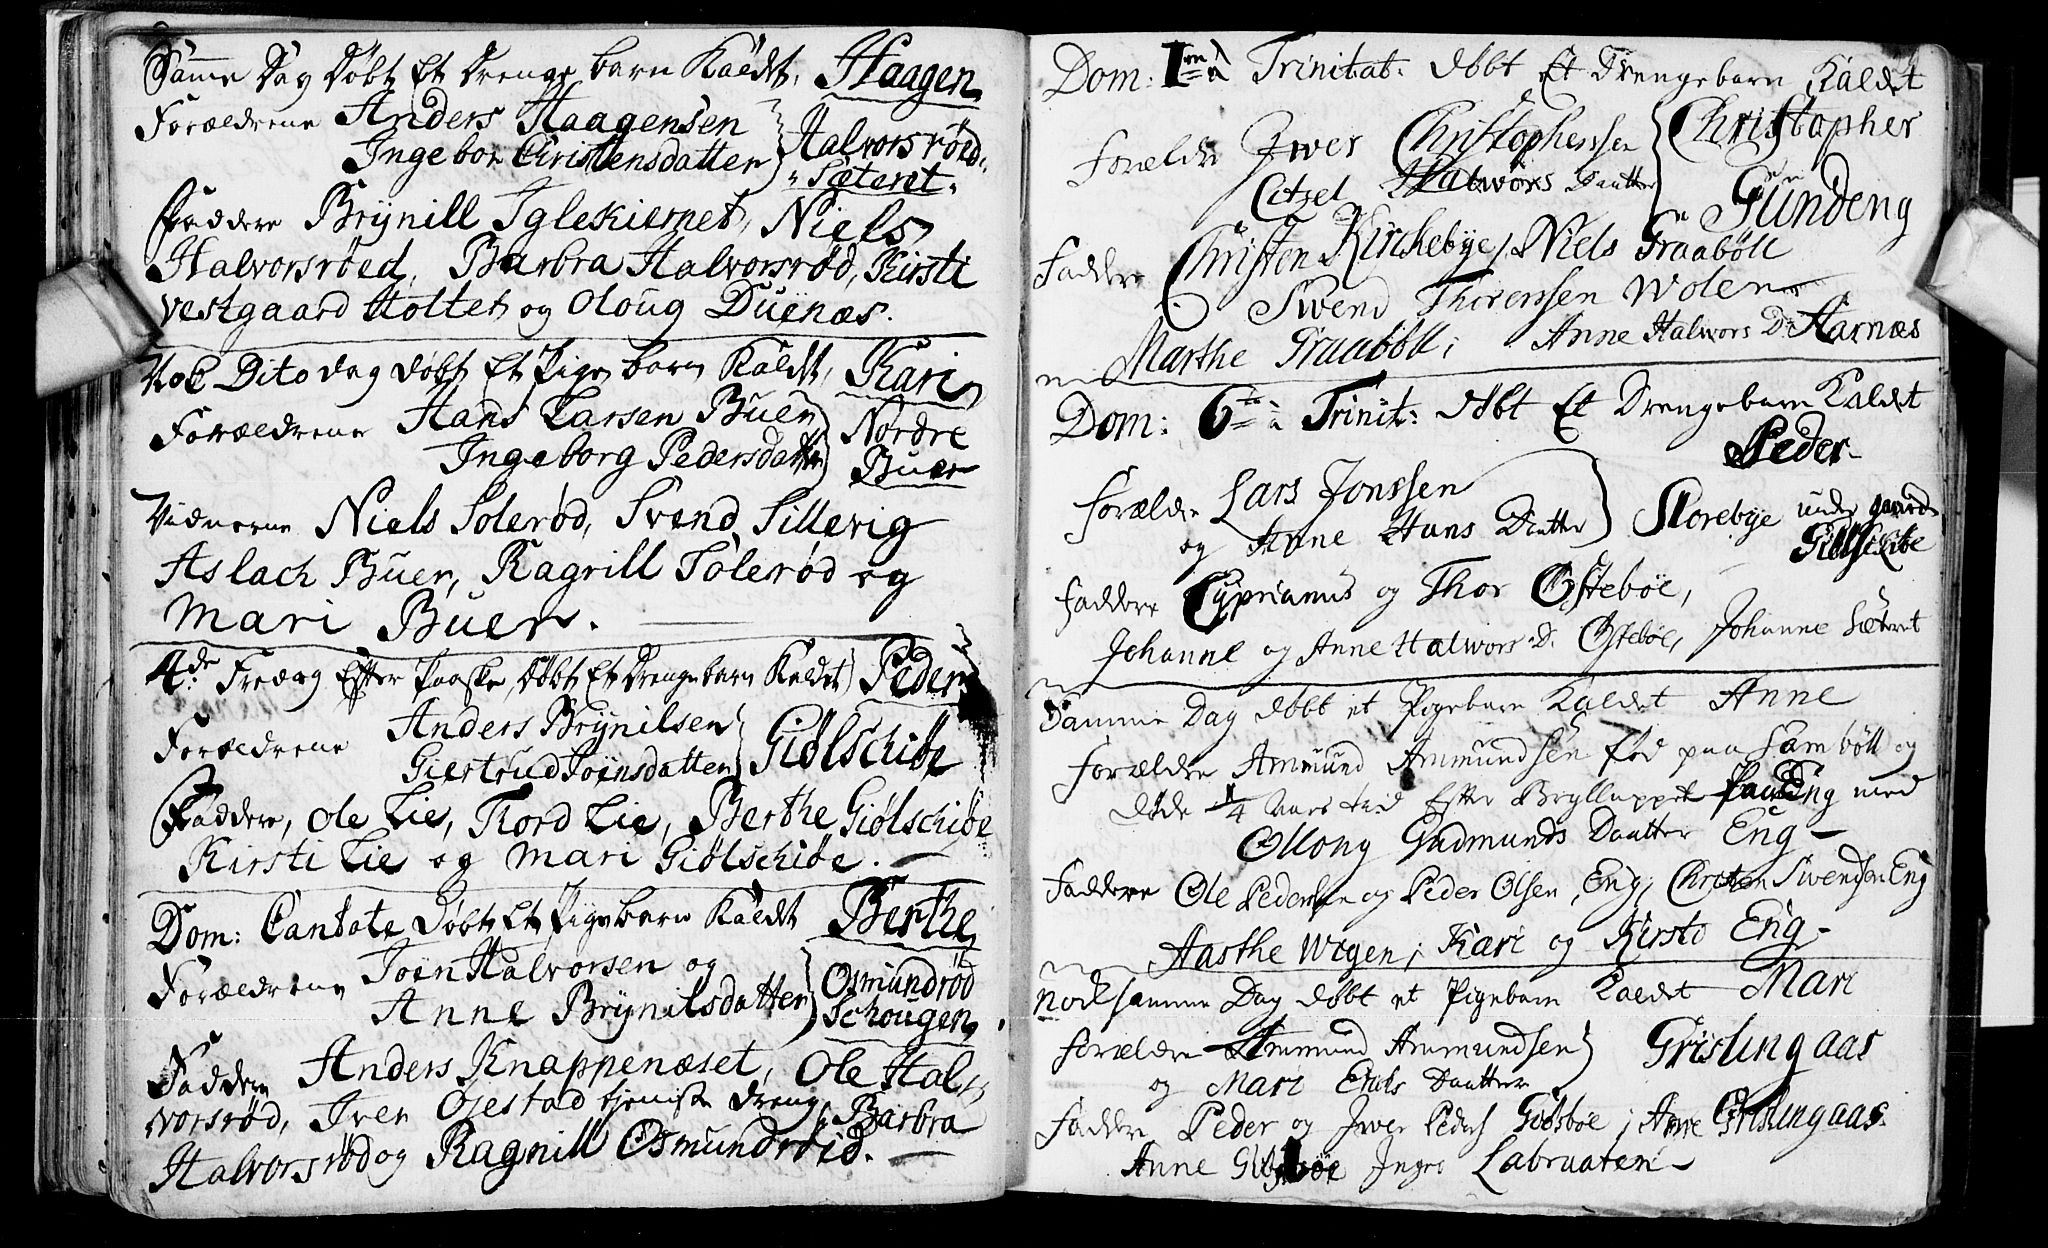 Samme Dag Døbt Et Drenge barn Kaldt, Haagen
Forældrene Anders Haagensen
Ingebor Christensdatter
Halvorsrøed
Sæteret.
Faddere Brÿnill Iglekiernet, Niels
Halvorsrøed, Barbra Halvorsrød, Kirsti
vestgaard Holtet og Oloug Duenæs.
Nok Dito dag døbt Et Pige barn Kaldt, Kari
Forældrene Hans Larsen Buer
Ingeborg Pedersdatter
Nordre
Buer
Vidnerne Niels Solerød, Svend Sillevig
Aslach Buer, Ragnill Solerød og
Mari Buer.
4de Fredag Efter Paaske, Døbt Et Drengebarn Kaldet Peder
Forældrene Anders Brÿnilsen
Giertrud Joensdatter
Giølschiøe
Faddere, Ole Lie, Tord Lie, Berthe Giølschiøe
Kirsti Lie og Mari Giølschiøe.
Dom: Cantate Døbt Et Pigebarn Kaldt Berthe
Forældrene Joen Halvorsen og
Anne Brÿnilsdatter
Osmundrød
Schougen
Faddere Anders Knappenæset, Ole Hal-
vorsrød, Iver Ojestad tieniste dreng, Barbra
Halvorsrød og Ragnill Osmundrøed.
Dom: 1ma a Trinitat: døbt Et Drengebarn Kaldet
Christopher
Forældre Iver Christophersen
Citzel Halvors Daatter
Gundeng
Faddere Christen Kirchebÿe, Niels Graabøll
Svend Thorersen Wolen
Marthe Graabøll; Anne Halwors Dr Harnæs
Dom: 6te a Trinit: døbt Et Drengebarn Kaldet
Peder
Forældre Lars Jonssen
og Anne Hans Daatter
Storebÿe under gaarden
Faddere Cyprianus og Thor Østebøe,
Johanne og Anne Halwors D. Østebøe, Johanne Sæteret
Samme Dag døbt et Pigebarn Kaldet Anne
Forældre Ammund Ammundsen fød paa Sambøll og
døde 1/4 Aars tid Efter Brylluppet paa Eng med
Ollong Gudmunds Daatter Eng
Faddere Ole Pedersen og Peder Olsen, Eng; Christen Swendsen Eng
Aasthe Wigen; Kari og Kirsto Eng
nock samme Dag døbt et Pigebarn Kaldet Mari
Forældre Ammund Ammundsen
og Mari Daatter
Grislingaas
Faddere Peder og Iver Peders Anne Grislingaas
Anne Ingri Labraaten